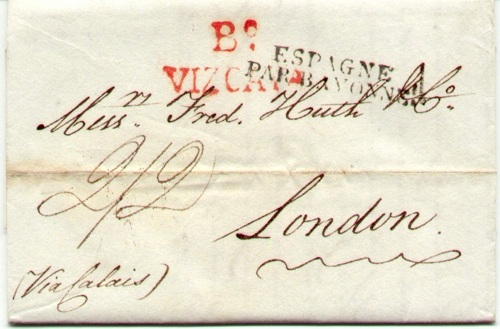 Bº
VIZCAYA
ESPAGNE
PAR BAYONNE
Messrs Fred. Huth & Cº.
2/2
London.
(Via Calais)